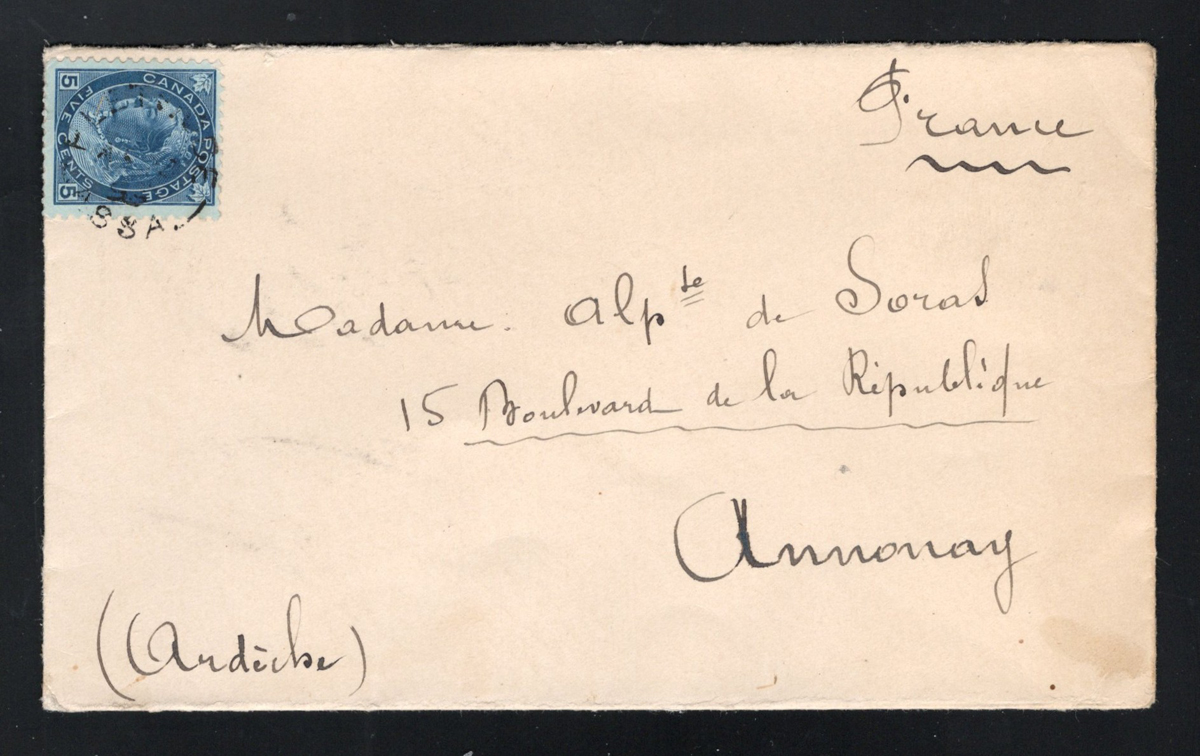 CANADA POSTAGE
FIVE CENTS
5 5
ASSA.
France
Madame Alpse de Soras
15 Boulevard de la République
Annonay
(Ardèche)